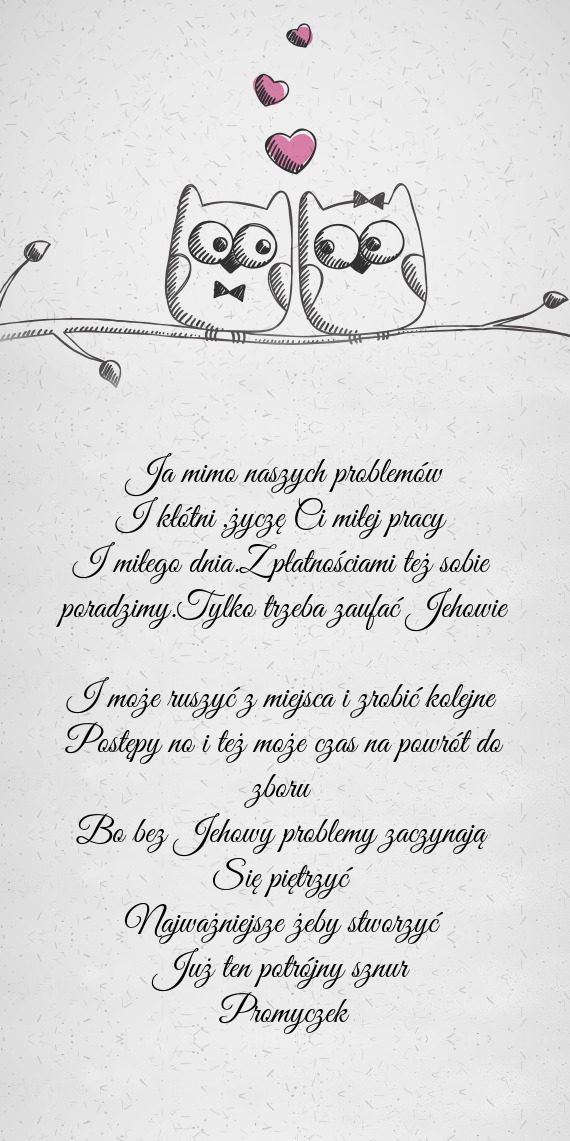 Ja mimo naszych problemów
I kłótni ,życzę Ci miłej pracy
I miłego dnia.Zpłatnościami też sobie
poradzimy.Tylko trzeba zaufać Jehowie
I może ruszyć z miejsca i zrobić kolejne
Postępy no i też może czas na powrót do
zboru
Bo bez Jehowy problemy zaczynają
Się piętrzyć
Najważniejsze żeby stworzyć
Już ten potrójny sznur
Promyczek